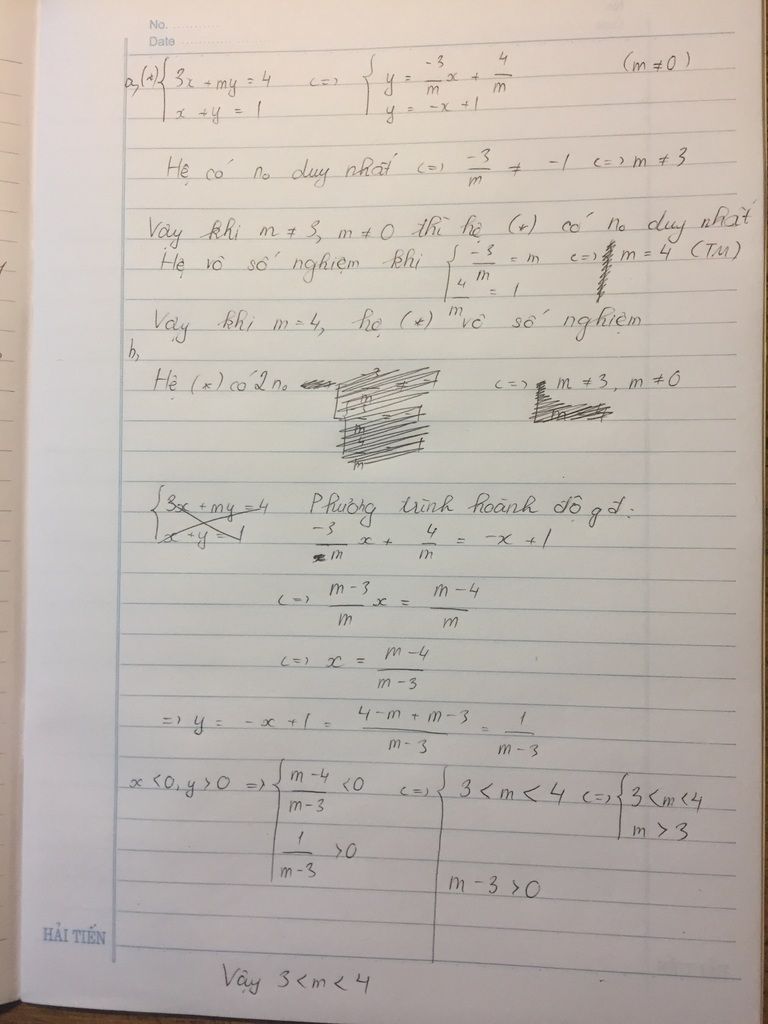 No.
Date
a, (*) { 3x + my = 4 <=> { y = -3/m x + 4/m (m ≠ 0)
x + y = 1 y = -x + 1
Hệ có no duy nhất <=> -3/m ≠ -1 <=> m ≠ 3
Vậy khi m ≠ 3, m ≠ 0 thì hệ (*) có no duy nhất
Hệ vô số nghiệm khi { -3/m = m <=> m = 4 (TM)
4/m = 1
Vậy khi m = 4, hệ (*) vô số nghiệm
b,
Hệ (*) có 2 no <=> m ≠ 3, m ≠ 0
{ 3x + my = 4 Phương trình hoành độ gđ:
x + y = 1 -3/m x + 4/m = -x + 1
<=> m-3/m x = m-4/m
<=> x = m-4/m-3
=> y = -x + 1 = 4-m+m-3/m-3 = 1/m-3
x < 0, y > 0 => { m-4/m-3 < 0 <=> { 3 < m < 4 <=> { 3 < m < 4
1/m-3 > 0 m > 3
m - 3 > 0
HẢI TIẾN
Vậy 3 < m < 4